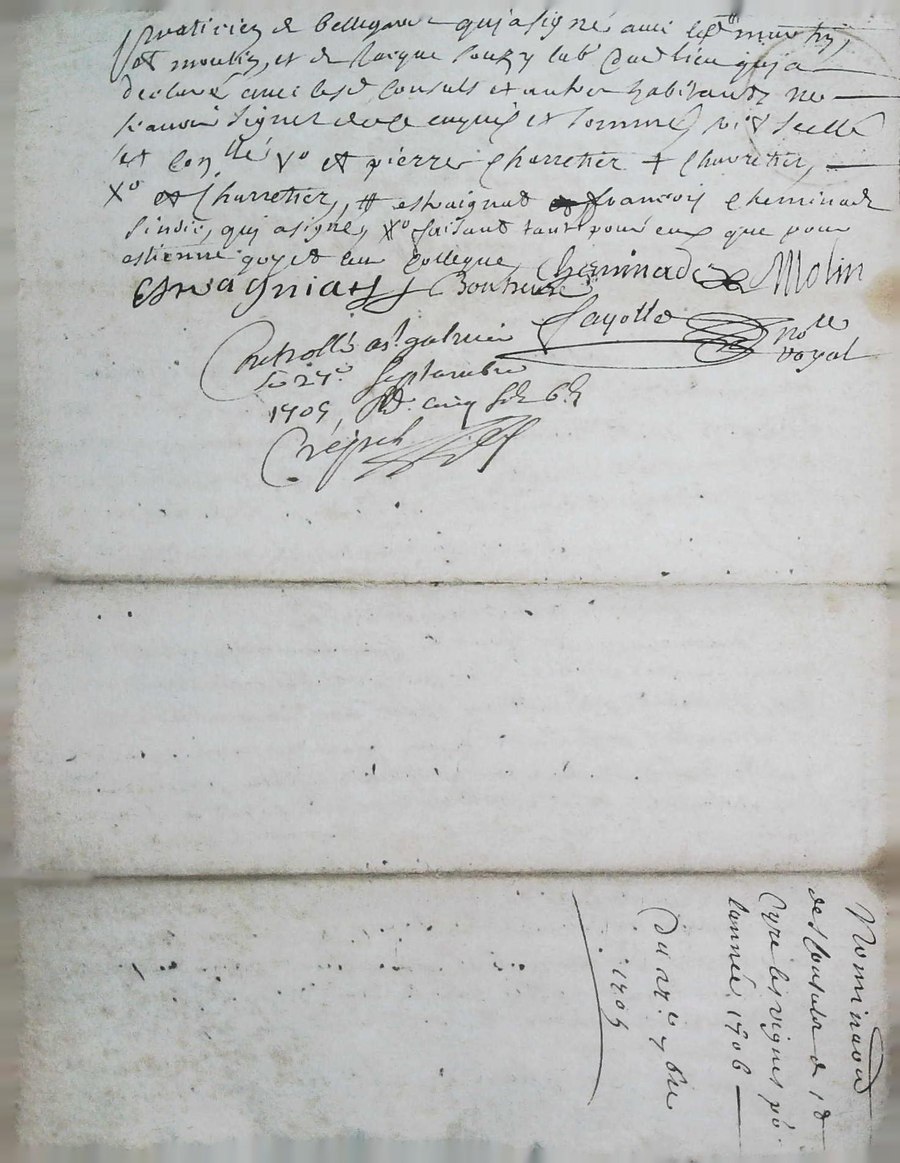 praticien de bellegarde qui a signé avec led martin,
et moulin, et de Jacque souzy lab dud lieu qui a
declaré avec lesd consuls et autres habitants ne
scavoir signer de ce enquis et sommé,
et Con^llé v^o et pierre Charretier + Charretier,
X^o Charretier, # estraignat francois cheminade
sindic, qui a signé, X^o faisant tant pour eux que pour
estienne goyet leur collegue
Estragniat Bonheure Cheminade Molin
Fayolle no^re
royal
Controllé a s^t galmier
le 27^e Septembre
1705, Rd. cinq sols 6 d
Crépet
Nominaon
des Consuls de S^t
Cyre les vignes po^r
lannée 1706
Du 27^e 7bre
1705